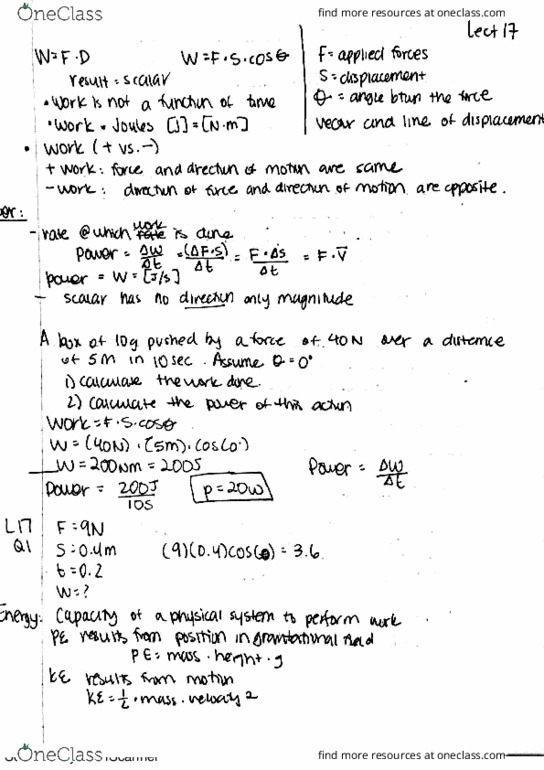 OneClass
find more resources at oneclass.com
Lect 17
W=F·D
W=F·S·cosθ
F=applied forces
result=scalar
S=displacement
·Work is not a function of time
θ=angle btwn the force
·Work=Joules [J]=[N·m]
vector and line of displacement
·Work (+ vs.-)
+ work: force and direction of motion are same
-work: direction of force and direction of motion are opposite.
er:
-rate @which work is done
power = ΔW/Δt = (ΔF·S)/Δt = F·ΔS/Δt = F·V̄
power = W = [J/s]
- scalar has no direction only magnitude
A box of 10g pushed by a force of 40N over a distance
of 5M in 10sec. Assume θ=0°
1) calculate the work done.
2) Calculate the power of this action
Work=F·S·cosθ
W=(40N)·(5m)·cos(0°)
W=200Nm=200J
Power = ΔW/Δt
Power = 200J/10S
p=20W
L17
F=9N
Q1
S=0.4m
(9)(0.4)cos(0)=3.6
t=0.2
W=?
Energy: Capacity of a physical system to perform work
PE results from position in gravitational field
PE=mass·height·g
KE results from motion
KE=½·mass·velocity 2
OneClass
find more resources at oneclass.com